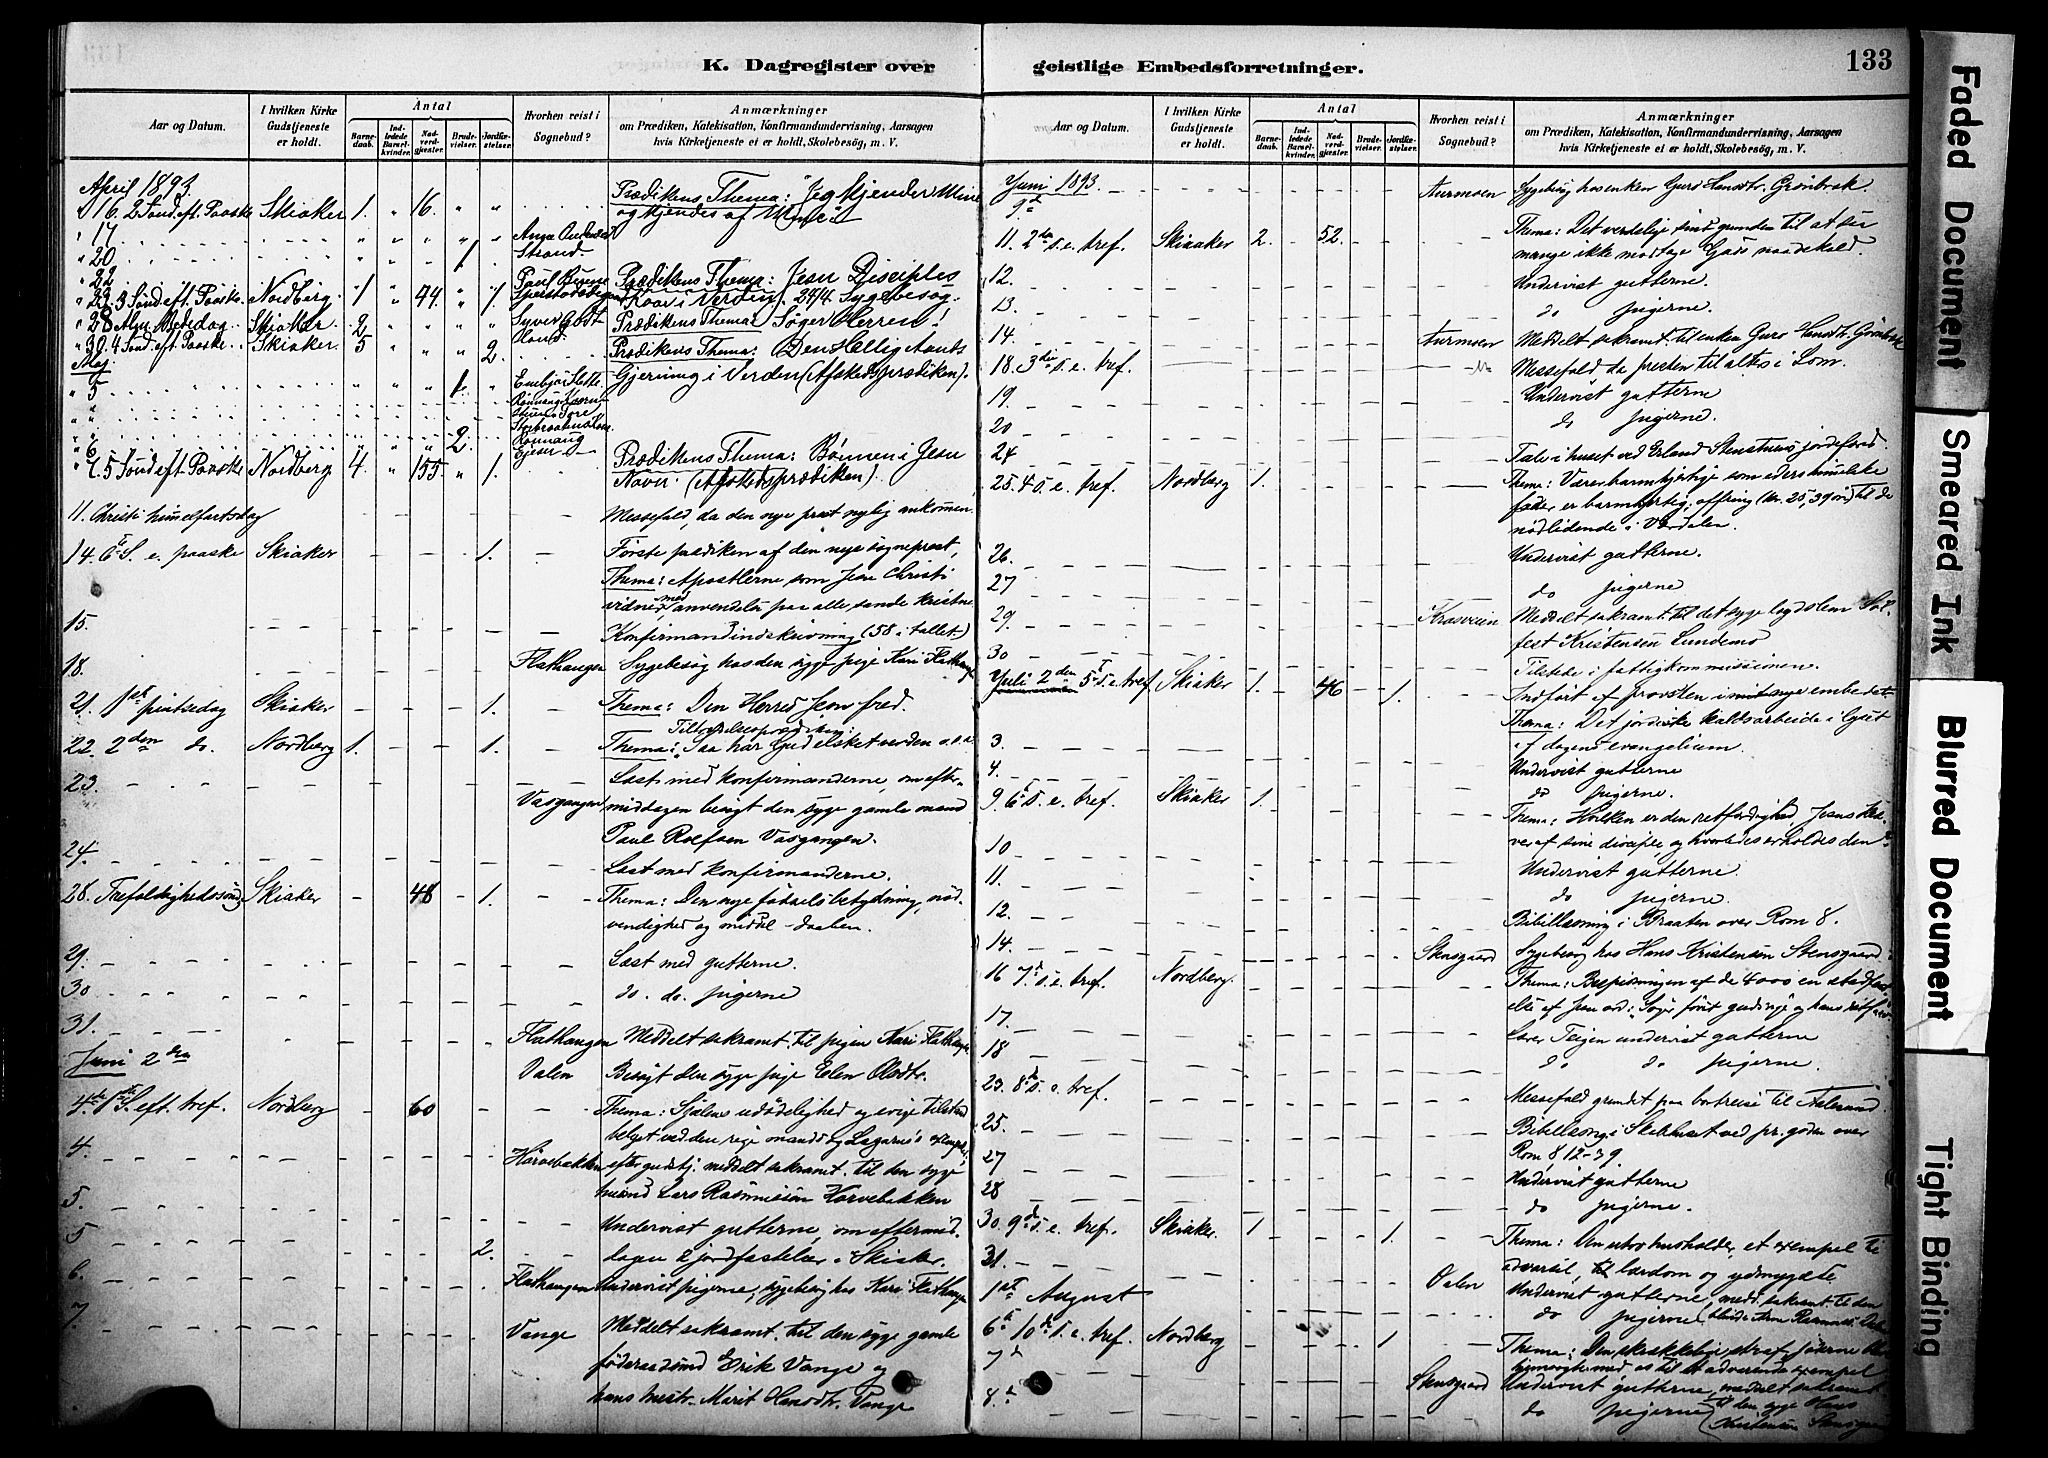 K. Dagregister over
Aar og Datum.
I hvilken Kirke Gudstjeneste er holdt.
Antal
Barnedaab.
Indledede Barselkvinder.
Nadverdgjester.
Brudevielser.
Jordfæstelser.
Hvorhen reist i Sognebud?
Anmærkninger
om Prædiken, Katekisation, Konfirmandundervisning, Aarsagen
hvis Kirketjeneste ei er holdt, Skolebesög, m. V.
April 1893.
16. 2 Sønd. eft. Paaske Skiaker 1. " 16. " " Prædikens Thema: "Jeg kjender Mine
og kjendes af Mine"
" 17
" 20 Strand.
" 22
" 23. 3 Sønd. eft. Paaske Nordberg. 1 " 44 " 1. Prædikens Thema: Jesu Disciples
Kaar i Verden. 24/4 Sygebesøg.
" 28 Alm. Bededag Skiaker. 2 " Prædikens Thema: Søger Herren!
" 30. 4 Sønd. eft. Paaske Skiaker. 5 " " " 2. Prædikens Thema: Den Hellig Aands
Gjerning i Verden (Afskedsprædiken).
Maj
" 5
" 6 2.
" 7. 5 Sønd. eft. Paaske Nordberg 4. " 155. " 1. Prædikens Thema: Bønnen i Jesu
Navn. (Afskedsprædiken).
11. Christi himmelfartsdag Messefald, da den nye prest nylig ankommen.
14. 6te S. e. paaske Skiaker 1. Første prædiken af den nye sogneprest,
Thema: Apostlerne som Jesu Christi
vidner, med anvendelse paa alle sande kristne
15. Konfirmandindskrivning (58 i tallet)
18. Flathaugen Sygebesøg hos den syge pige Kari Flathaugen
21. 1st pintsedag Skiaker 1. Thema: Den Herres Jesu fred.
Tiltrædelsesprædiken:
22. 2den do. Nordberg 1. 1. Thema: Saa har Gud elsket verden o.s.v.
23. Læst med konfirmanderne, om efter-
Vasgangen middagen besøgt den syge gamle mand
Paul Rolfsen Vasgangen.
24. Læst med konfirmanderne.
28. Trefoldighedssønd. Skiaker 48 1. Thema: Den nye fødsels betydning, nød-
vendighed og middel - daaben.
29. Læst med gutterne.
30 do. do. pigerne
31. Flathaugen Meddelt sakramt. til pigen Kari Flathaugen
Juni 2den Dalen Besøgt den syge pige Elen Olsdtr.
4de 1ste S. eft. tref. Nordberg 60 Thema: Sjælens udødelighed og evige tilstand
belyst ved den rige mands og Lazarus's exempel.
4. Hørvebakken efter gudstj. meddelt sakramt. til den syge
mand Lars Rasmussen Hørvebakken
5. Undervist gutterne, om eftermid-
5 2. dagen 2 jordfæstelser i Skiaker.
6. Flathaugen Undervist pigerne, sygebesøg hos Kari Flathaugen
7. Vange Meddelt sakramt. til den syge gamle
føderaadsmand Erik Vange og
hans hustr. Marit Hansdtr. Vange
geistlige Embedsforretninger.
133
Aar og Datum.
I hvilken Kirke Gudstjeneste er holdt.
Antal
Barnedaab.
Indledede Barselkvinder.
Nadverdgjester.
Brudevielser.
Jordfæstelser.
Hvorhen reist i Sognebud?
Anmærkninger
om Prædiken, Katekisation, Konfirmandundervisning, Aarsagen
hvis Kirketjeneste ei er holdt, Skolebesög, m. V.
Juni 1893.
9de Aurmoen Sygebesøg hos enken Guro Hansdtr. Grønbræk.
11. 2den S. e. tref. Skiaker 2. 52. Thema: Det verdslige sind grunden til at saa
mange ikke modtage Guds naadekald.
12. Undervist gutterne.
13. do pigerne.
14. Aurmoen Meddelt sakramt. til enken Guro Hansdtr. Grønbræk
18. 3die S. e. tref. Messefald da presten til alters i Lom.
19. Undervist gutterne
20 do pigerne.
24 Tale i huset ved Erland Stensnes jordefærd
25. 4 S. e. tref. Nordberg 1. Thema: Værer barmhjertige som eders himmelske
fader er barmhjertig; offring (kr. 25,39 øre) til de
nødlidende i Værdalen.
26. Undervist gutterne.
27 do pigerne
29. Meddelt sakramt. til det syge lægdslem
Kristensen Lundemo
30 Tilstede i fattigkommissionen.
Juli 2den 5te S. e. tref Skiaker 1. 46 1. Indført af provsten i mit nye embede.
Thema: Det jordiske kaldsarbeide i lyset
af dagens evangelium.
3. Undervist gutterne
4. do pigerne.
9. 6te S. e. tref. Skiaker 1. Thema: Hvilken er den retfærdighed, Jesus kræ-
ver af sine disciple, og hvorledes erholdes den
10 Undervist gutterne.
11. do pigerne.
12. Bibellæsning i Braaten over Rom 8.
14. Stensgaard Sygebesøg hos Hans Kristensen Stensgaard
16 7de S. e. tref. Nordberg. Thema: Bespisningen af de 4000 en stadfæst-
else af Jesu ord: Søger først guds rige og hans retfærd.
17. undervist gutterne
18 do do pigerne.
23. 8de S. e. tref. Messefald grundet paa bortreise til Aalesund.
25. Bibellæsng i Skolehuset ved pr.gden over
Rom 8 12-39.
27 Undervist gutterne
28 do pigerne.
30. 9de S. e. tref. Skiaker. 1 1. Thema: Den utro husholder, et exempel til
advarsel, til lærdom og ydmygelse
31. Undervist gutterne, medd. sakramt. til den
1st August Dalen do pigerne,
6te 10de S. e. tref. Nordberg 1 Thema: Den skrækkelige straf,
7de Undervist gutterne, meddelt sakramt
8de Stensgaard do pigerne til den syge Hans
Kristensen Stensgaard
Faded Document
Smeared Ink
Blurred Document
Tight Binding